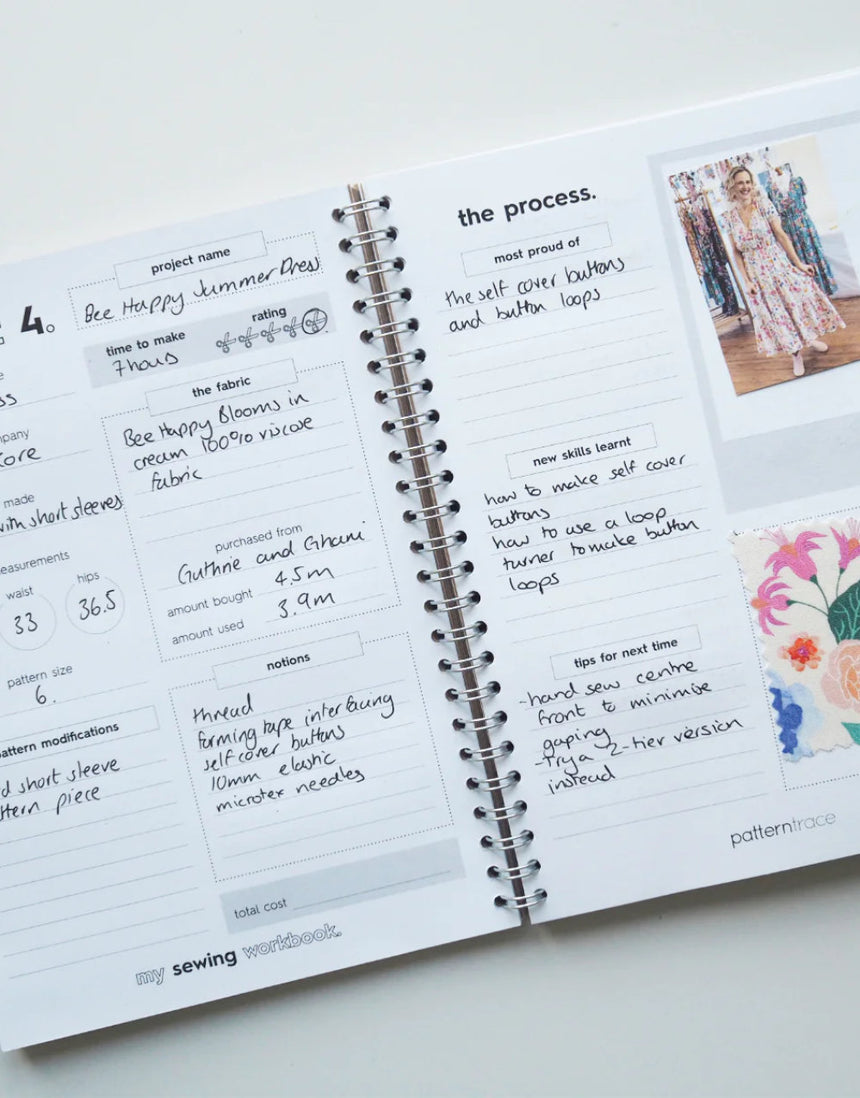 4.
project name
Bee Happy Summer Dress
time to make
7 hours
rating
made
with short sleeves
waist
33
hips
36.5
pattern size
6.
pattern modifications
short sleeve
piece
the fabric
Bee Happy Blooms in
cream 100% viscose
fabric
purchased from
Guthrie and Ghani
amount bought 4.5m
amount used 3.9m
notions
thread
forming tape interfacing
self cover buttons
10mm elastic
microtex needles
total cost
my sewing workbook.
the process.
most proud of
the self cover buttons
and button loops
new skills learnt
how to make self cover
buttons
how to use a loop
turner to make button
loops
tips for next time
-hand sew centre
front to minimise
gaping
-try a 2-tier version
instead
patterntrace